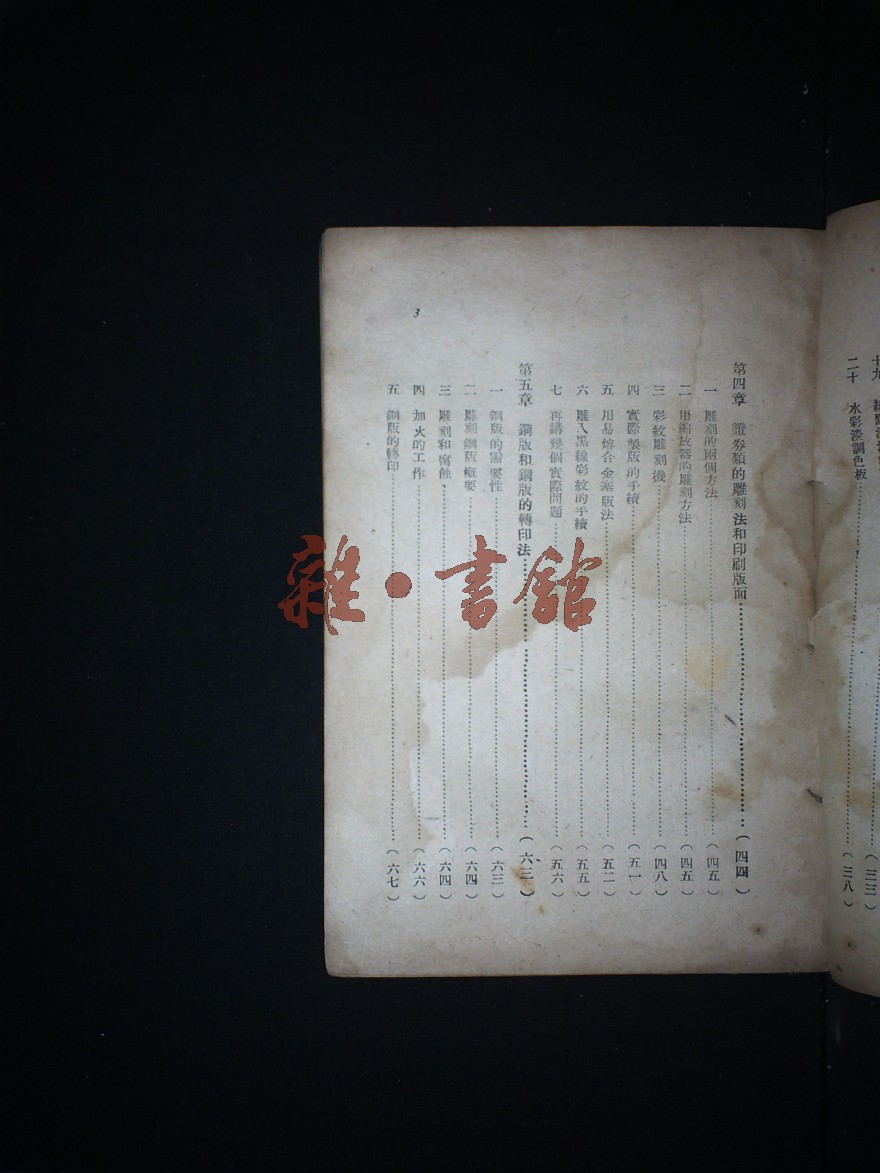 二十 水彩淡調色板……（三八）
第四章 證券類的雕刻法和印刷版面……（四四）
一 雕刻的兩個方法……（四五）
二 用縮放器的雕刻方法……（四五）
三 彩紋雕刻機……（四八）
四 實際製版的手續……（五一）
五 用易熔合金塞版法……（五二）
六 雕入黑線彩紋的手續……（五五）
七 再講幾個實際問題……（五六）
第五章 鋼版和鋼版的轉印法……（六三）
一 鋼版的需要性……（六三）
二 雕刻鋼版概要……（六四）
三 雕刻和腐蝕……（六四）
四 加火的工作……（六六）
五 鋼版的轉印……（六七）
3
雜·書館